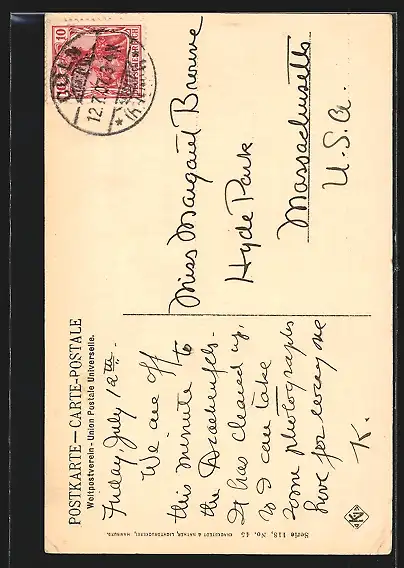 POSTKARTE — CARTE-POSTALE
Weltpostverein - Union Postale Universelle.
Friday, July 12th.
We are off
this minute to
the Drachenfels.
It has cleared up,
so I can take
some photographs
here for
K.
Miss Margaret Browne
Hyde Park
Massachusetts
U.S.A.
10
DEUTSCHES REICH
12.7.07.3-4N
Serie 118, No. 45 KNACKSTEDT & NÄTHER, LICHTDRUCKEREI, HAMBURG.